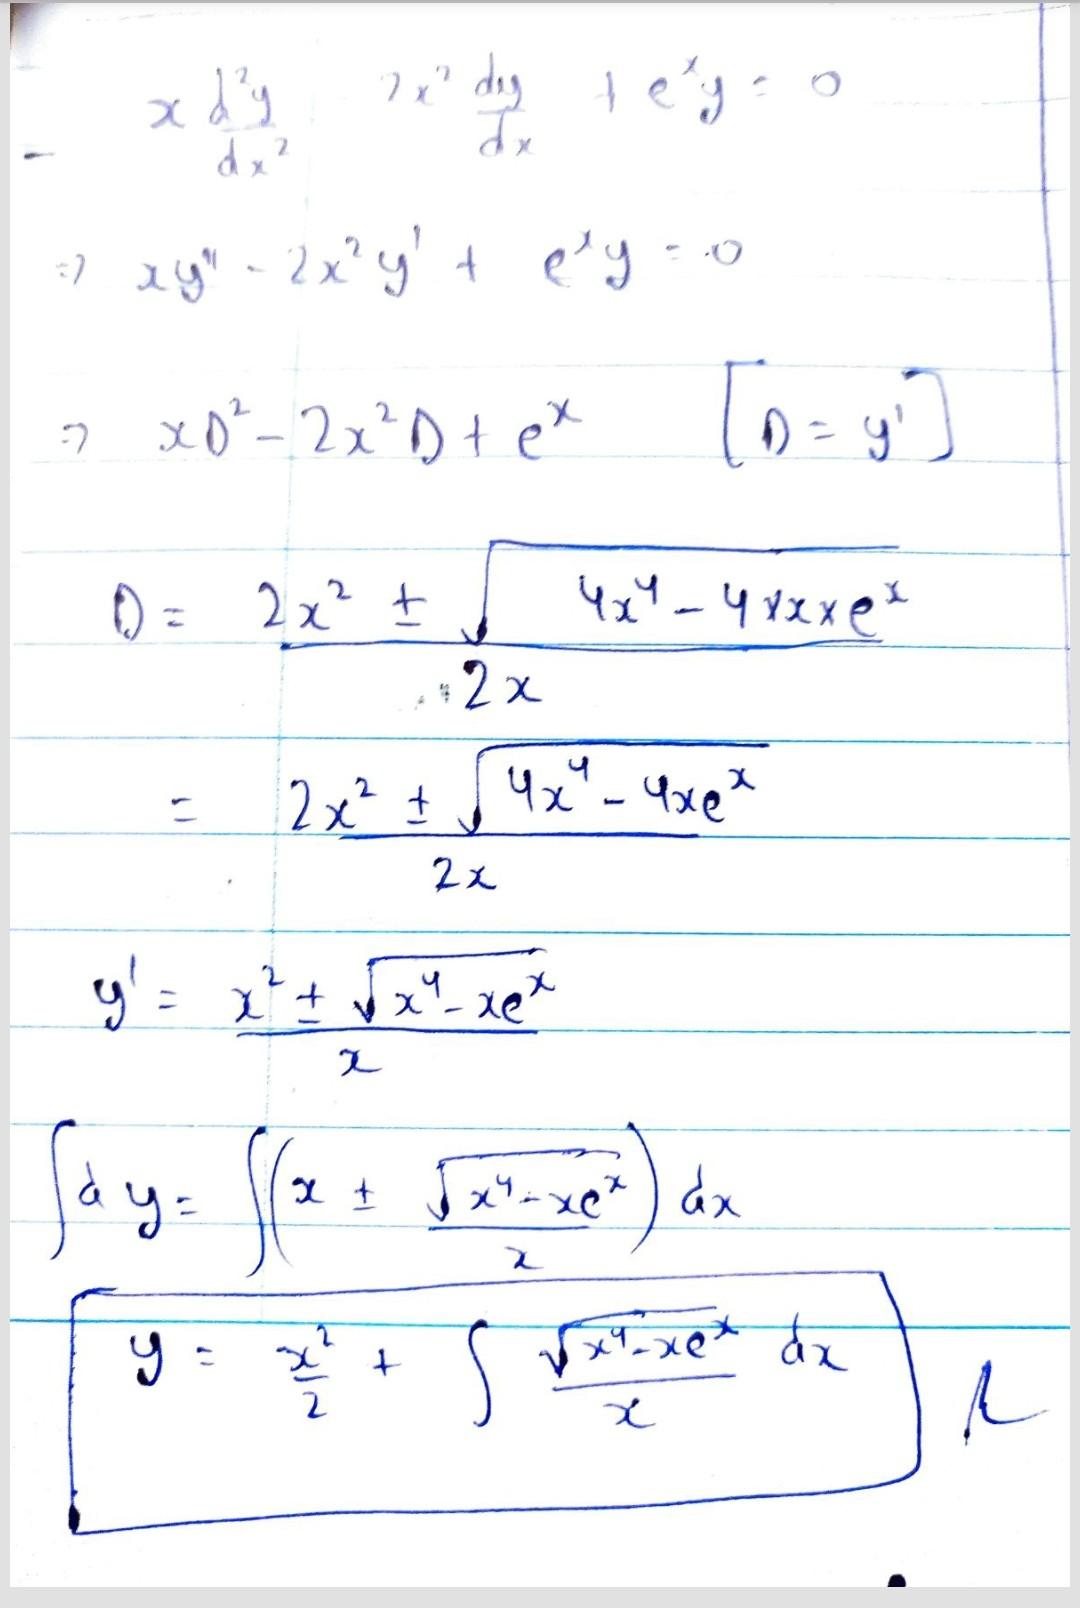 x d²y/dx² 2x² dy/dx + eˣy = 0
⇒ xy'' - 2x²y' + eˣy = 0
⇒ xD² - 2x²D + eˣ [D = y']
D = (2x² ± √(4x⁴ - 4×x×eˣ))/2x
= (2x² ± √(4x⁴ - 4xeˣ))/2x
y' = (x² ± √(x⁴ - xeˣ))/x
∫dy = ∫(x ± √(x⁴ - xeˣ)/x) dx
y = x²/2 + ∫ √(x⁴ - xeˣ)/x dx